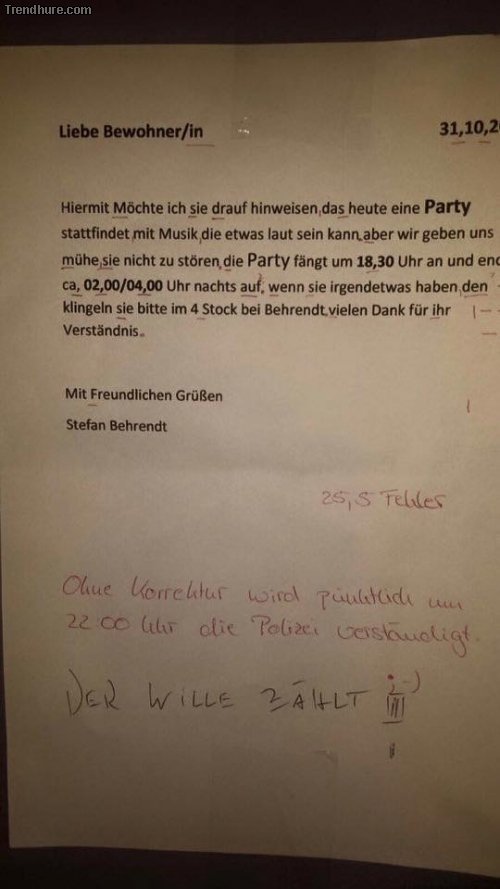 Trendhure.com
Liebe Bewohner/in 31,10,20
Hiermit Möchte ich sie drauf hinweisen,das heute eine Party
stattfindet mit Musik,die etwas laut sein kann,aber wir geben uns
mühe,sie nicht zu stören,die Party fängt um 18,30 Uhr an und end
ca, 02,00/04,00 Uhr nachts auf, wenn sie irgendetwas haben,den
klingeln sie bitte im 4 Stock bei Behrendt,vielen Dank für ihr
Verständnis.
Mit Freundlichen Grüßen
Stefan Behrendt
25,5 Fehler
Ohne Korrektur wird pünktlich um
22 00 Uhr die Polizei verständigt.
DER WILLE ZÄHLT ;-)